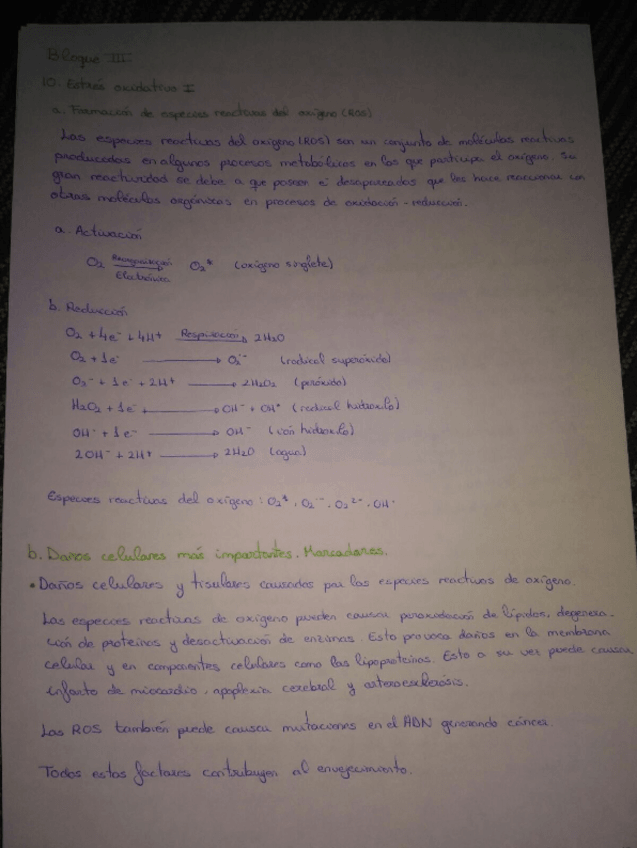 Bloque III
10. Estrés oxidativo I
a. Formación de especies reactivas del oxígeno (ROS)
Las especies reactivas del oxígeno (ROS) son un conjunto de moléculas reactivas
producidas en algunos procesos metabólicos en los que participa el oxígeno. Su
gran reactividad se debe a que poseen e⁻ desapareados que les hace reaccionar con
otras moléculas orgánicas en procesos de oxidación - reducción.
a. Activación
O₂ Reorganización Electrónica → O₂* (oxígeno singlete)
b. Reducción
O₂ + 4e⁻ + 4H⁺ Respiración → 2H₂O
O₂ + 1e⁻ → O₂·⁻ (radical superóxido)
O₂⁻ + 1e⁻ + 2H⁺ → 2H₂O₂ (peróxido)
H₂O₂ + 1e⁻ → OH⁻ + OH* (radical hidroxilo)
OH· + 1e⁻ → OH⁻ (ión hidroxilo)
2OH⁻ + 2H⁺ → 2H₂O (agua)
Especies reactivas del oxígeno: O₂*, O₂·⁻, O₂²⁻, OH·
b. Daños celulares más importantes. Marcadores.
• Daños celulares y tisulares causados por las especies reactivas de oxígeno.
Las especies reactivas de oxígeno pueden causar peroxidación de lípidos, degenera-
ción de proteínas y desactivación de enzimas. Esto provoca daños en la membrana
celular y en componentes celulares como las lipoproteínas. Esto a su vez puede causar
infarto de miocardio, apoplexia cerebral y arteroesclerósis.
Las ROS también puede causar mutaciones en el ADN generando cáncer.
Todos estos factores contribuyen al envejecimiento.